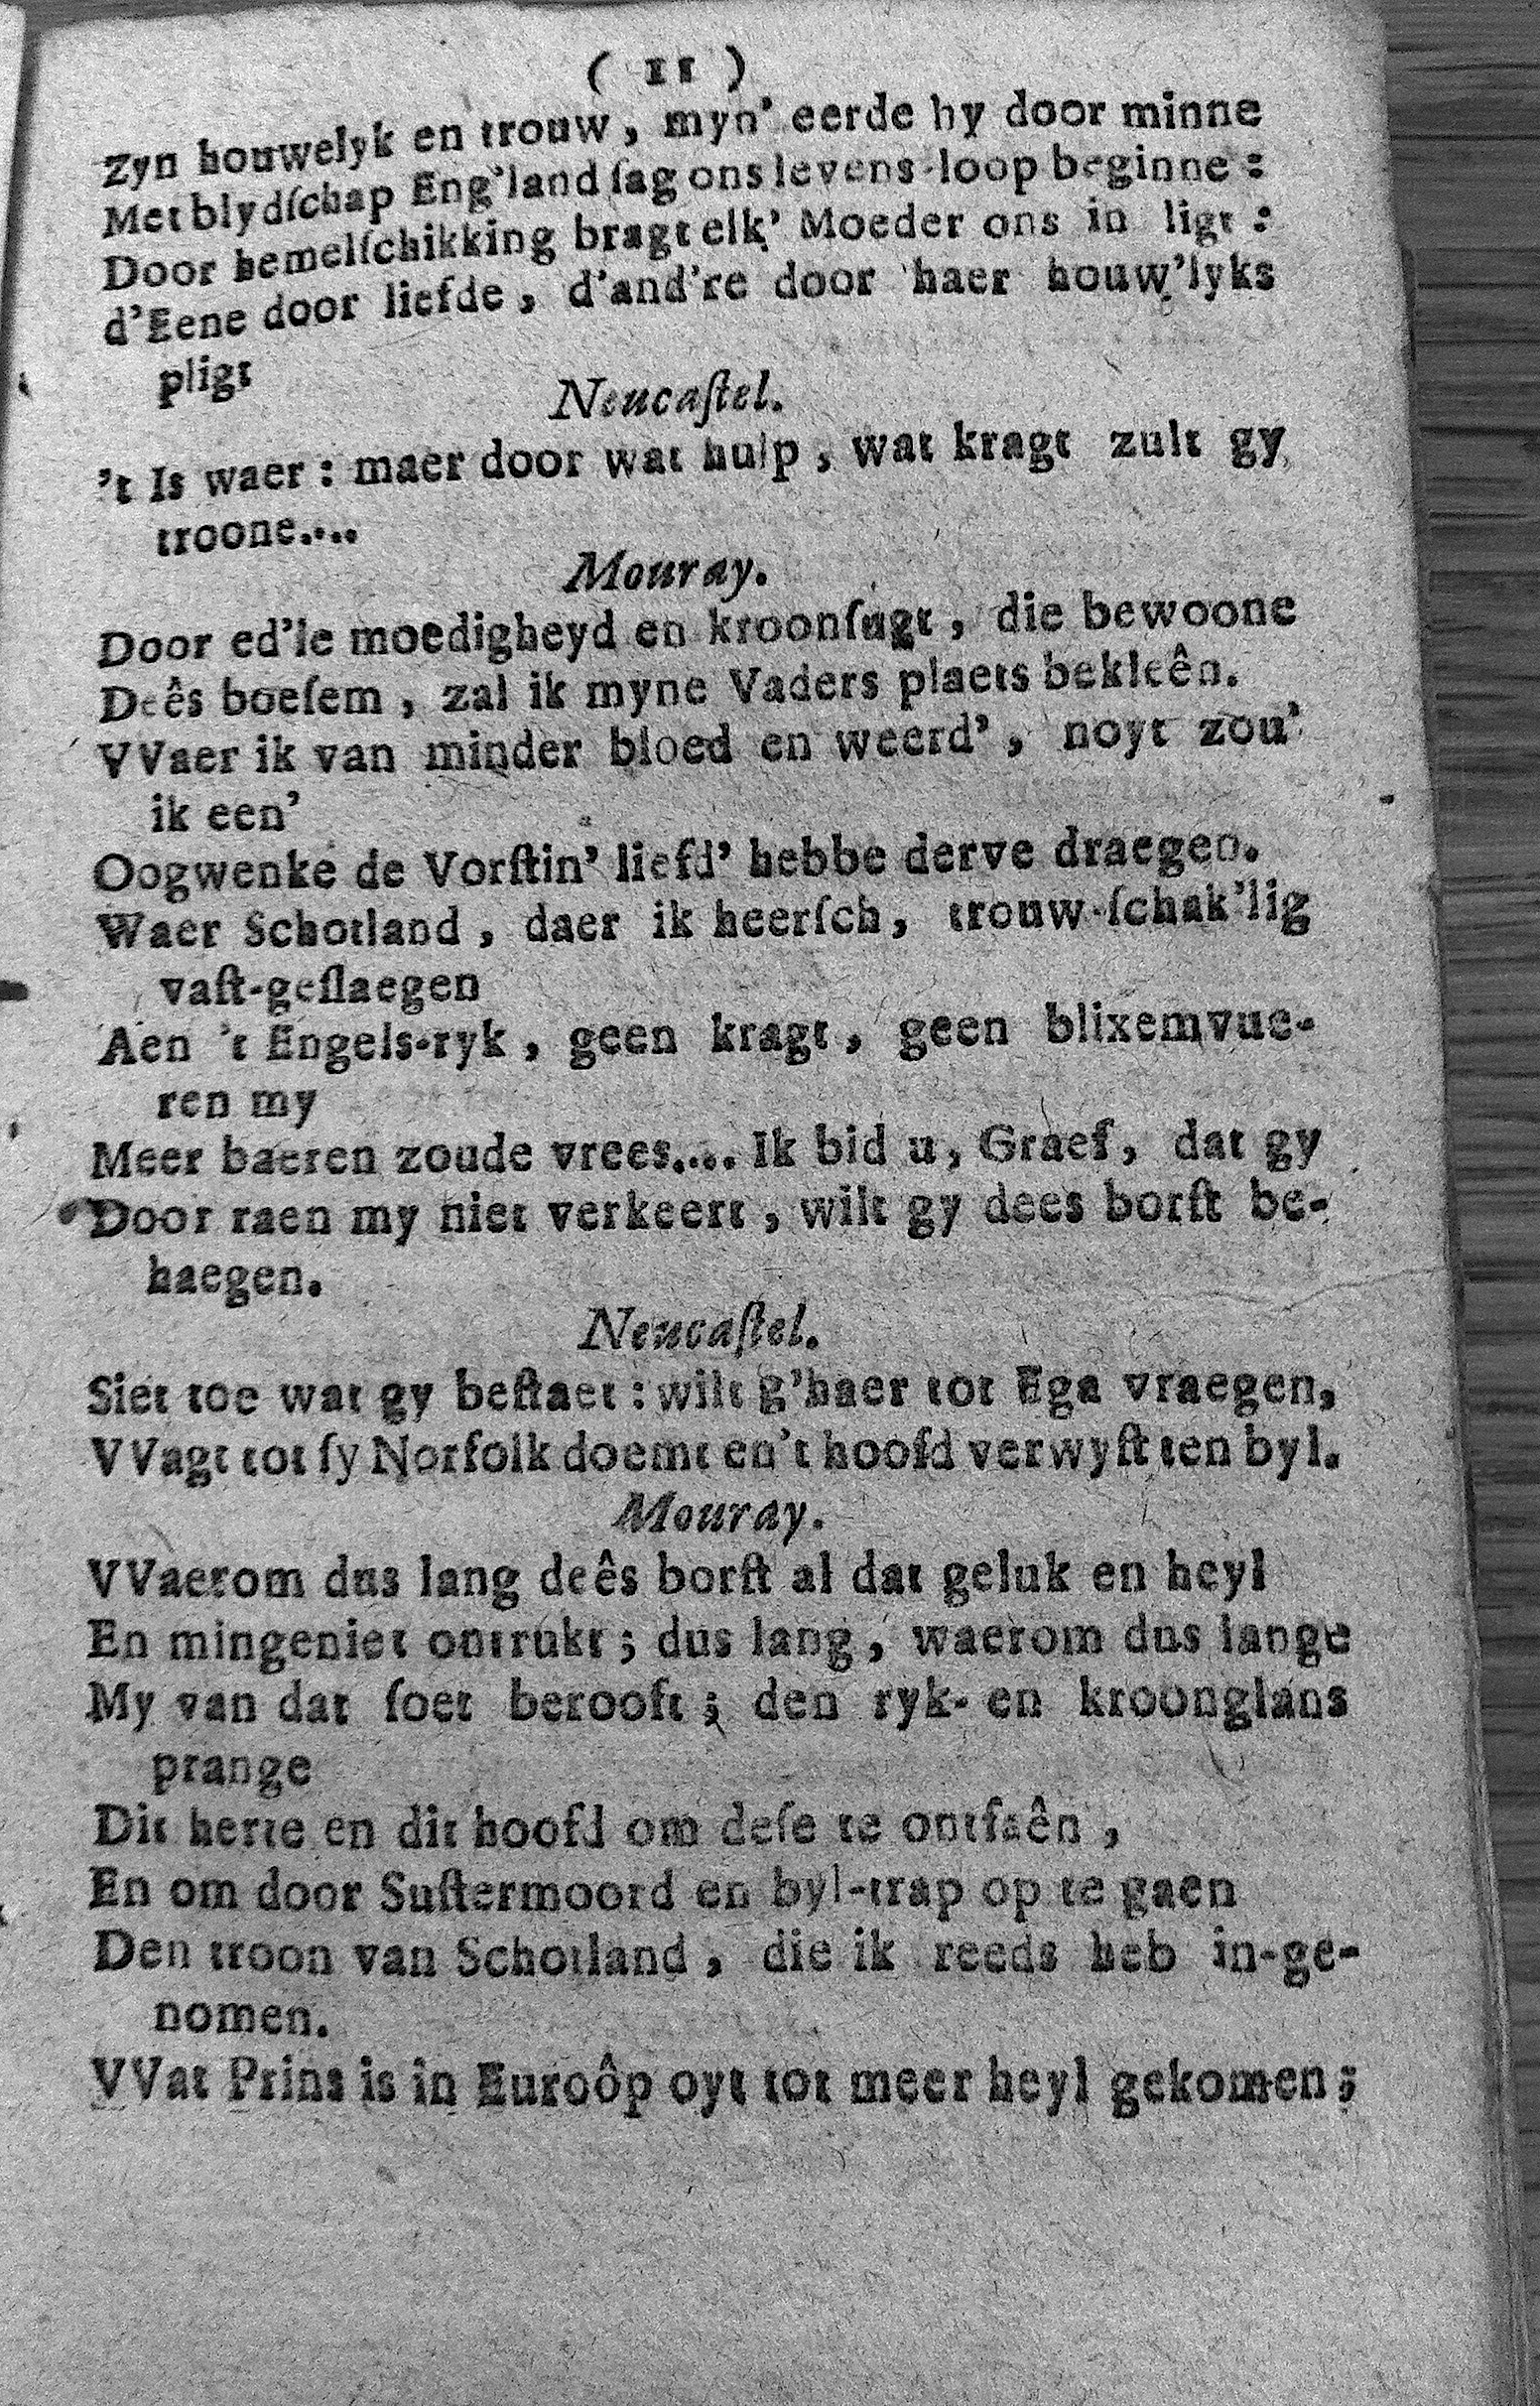 ( 11 )
Zyn houwelyk en trouw, myn' eerde hy door minne
Met blydſchap Eng'land ſag ons levens-loop beginne:
Door hemelſchikking bragt elk' Moeder ons in ligt:
d'Eene door liefde, d'and're door haer houw'lyks
pligt
Neucaſtel.
't Is waer: maer door wat hulp, wat kragt zult gy
troone....
Mouray.
Door ed'le moedigheyd en kroonſugt, die bewoone
Deês boeſem, zal ik myne Vaders plaets bekleên.
VVaer ik van minder bloed en weerd', noyt zou'
ik een'
Oogwenke de Vorſtin' liefd' hebbe derve draegen.
Waer Schotland, daer ik heerſch, trouw-ſchak'lig
vaſt-geſlaegen
Aen 't Engels-ryk, geen kragt, geen blixemvue-
ren my
Meer baeren zoude vrees.... Ik bid u, Graef, dat gy
Door raen my niet verkeert, wilt gy dees borſt be-
haegen.
Neucaſtel.
Siet toe wat gy beſtaet: wilt g'haer tot Ega vraegen,
VVagt tot ſy Norfolk doemt en't hoofd verwyſt ten byl.
Mouray.
VVaerom dus lang deês borſt al dat geluk en heyl
En mingeniet ontrukt; dus lang, waerom dus lange
My van dat ſoet berooft; den ryk- en kroonglans
prange
Dit herte en dit hoofd om deſe te ontfaên,
En om door Suſtermoord en byl-trap op te gaen
Den troon van Schotland, die ik reeds heb in-ge-
nomen.
VVat Prins is in Euroôp oyt tot meer heyl gekomen;